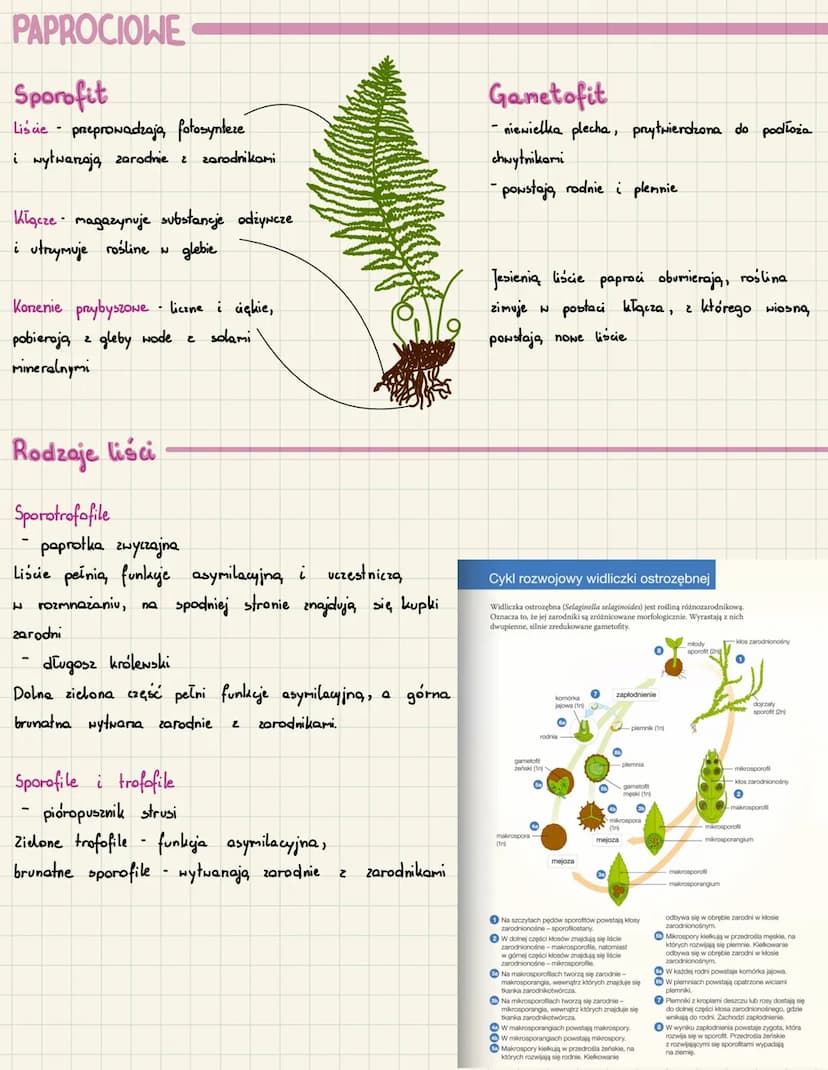 PAPROCIOWE
Sporofit
Liście - przeprowadzają fotosyntezę
i wytwarzają zarodnie z zarodnikami
Kłącze - magazynuje substancje odżywcze
i utrzymuje rośline w glebie
Korzenie przybyszowe - liczne i cięńkie,
pobierają z gleby wode z solami
mineralnymi
Gametofit
- niewielka plecha, przytwierdzona do podłoża
chwytnikami
- powstają rodnie i plemnie
Jesienią liście paproci obumierają, roślina
zimuje w postaci kłącza, z którego wiosną
powstają nowe liście
Rodzaje liści
Sporotrofofile
- paprotka zwyczajna
Liście pełnią funkcje asymilacyjną i uczestniczą
w rozmnażaniu, na spodniej stronie znajdują się kupki
zarodni
- długosz królewski
Dolna zielona część pełni funkcje asymilacyjną, a górna
brunatna wytwarza zarodnie z zarodnikami.
Sporofile i trofofile
- pióropusznik strusi
Zielone trofofile - funkcja asymilacyjna,
brunatne sporofile - wytwarzają zarodnie z zarodnikami
Cykl rozwojowy widliczki ostrozębnej
Widliczka ostrozębna (Selaginella selaginoides) jest rośliną różnozarodnikową.
Oznacza to, że jej zarodniki są zróżnicowane morfologicznie. Wyrastają z nich
dwupienne, silnie zredukowane gametofity.
8
młody
sporofit (2n)
kłos zarodnionośny
1
dojrzały
sporofit (2n)
komórka
jajowa (1n)
7
zapłodnienie
6a
rodnia
plemnik (1n)
6b
plemnia
gametofit
żeński (1n)
5a
5b
gametofit
męski (1n)
mikrosporofil
kłos zarodnionośny
2
makrosporofil
4b
3b
mikrospora
(1n)
4a
makrospora
(1n)
mejoza
mikrosporofil
mikrosporangium
mejoza
3a
makrosporofil
makrosporangium
1 Na szczytach pędów sporofitów powstają kłosy
zarodnionośne – sporofilostany.
2 W dolnej części kłosów znajdują się liście
zarodnionośne – makrosporofile, natomiast
w górnej części kłosów znajdują się liście
zarodnionośne – mikrosporofile.
3a Na makrosporofilach tworzą się zarodnie –
makrosporangia, wewnątrz których znajduje się
tkanka zarodnikotwórcza.
3b Na mikrosporofilach tworzą się zarodnie –
mikrosporangia, wewnątrz których znajduje się
tkanka zarodnikotwórcza.
4a W makrosporangiach powstają makrospory.
4b W mikrosporangiach powstają mikrospory.
5a Makrospory kiełkują w przedrośla żeńskie, na
których rozwijają się rodnie. Kiełkowanie
odbywa się w obrębie zarodni w kłosie
zarodnionośnym.
5b Mikrospory kiełkują w przedrośla męskie, na
których rozwijają się plemnie. Kiełkowanie
odbywa się w obrębie zarodni w kłosie
zarodnionośnym.
6a W każdej rodni powstaje komórka jajowa.
6b W plemniach powstają opatrzone wiciami
plemniki.
7 Plemniki z kroplami deszczu lub rosy dostają się
do dolnej części kłosa zarodnionośnego, gdzie
wnikają do rodni. Zachodzi zapłodnienie.
8 W wyniku zapłodnienia powstaje zygota, która
rozwija się w sporofit. Przedrośla żeńskie
z rozwijającymi się sporofitami wypadają
na ziemię.